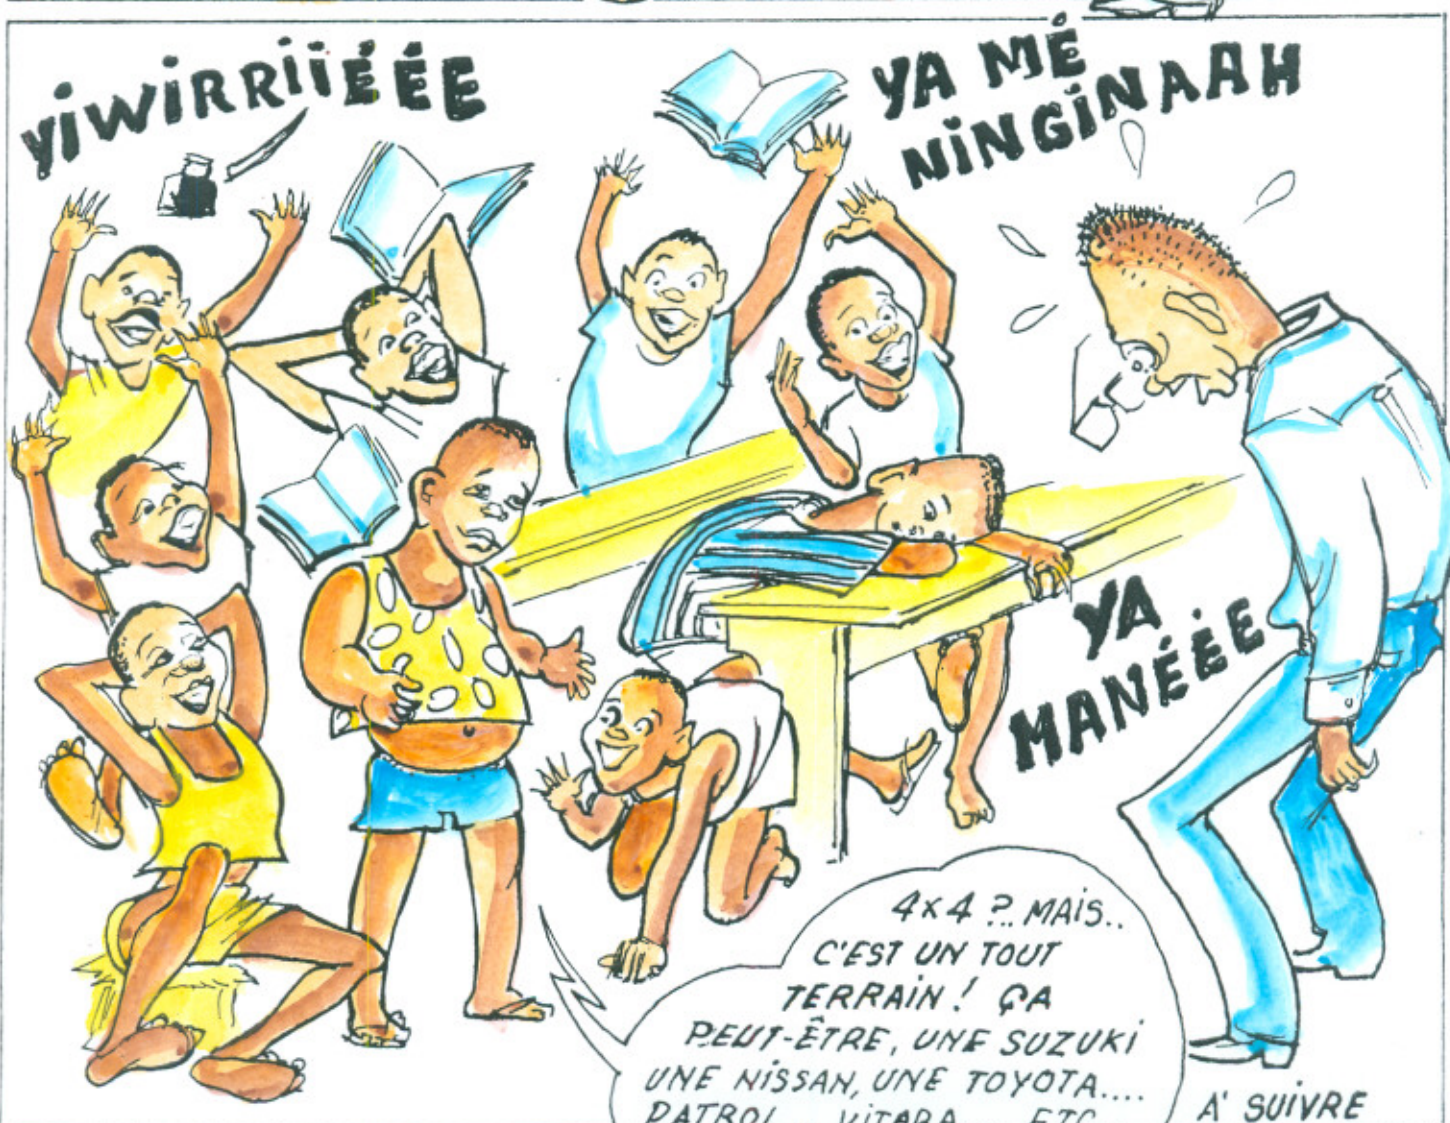 YiWiRRiiÉÉE
YA MÉ
NiNGiNAAH
YA
MANÉÉE
4x4 ?.. MAiS..
C'EST UN TOUT
TERRAiN ! ÇA
PEUT-ÊTRE, UNE SUZUKi
UNE NiSSAN, UNE TOYOTA....
PATROL ViTARA ETC
A' SUiVRE